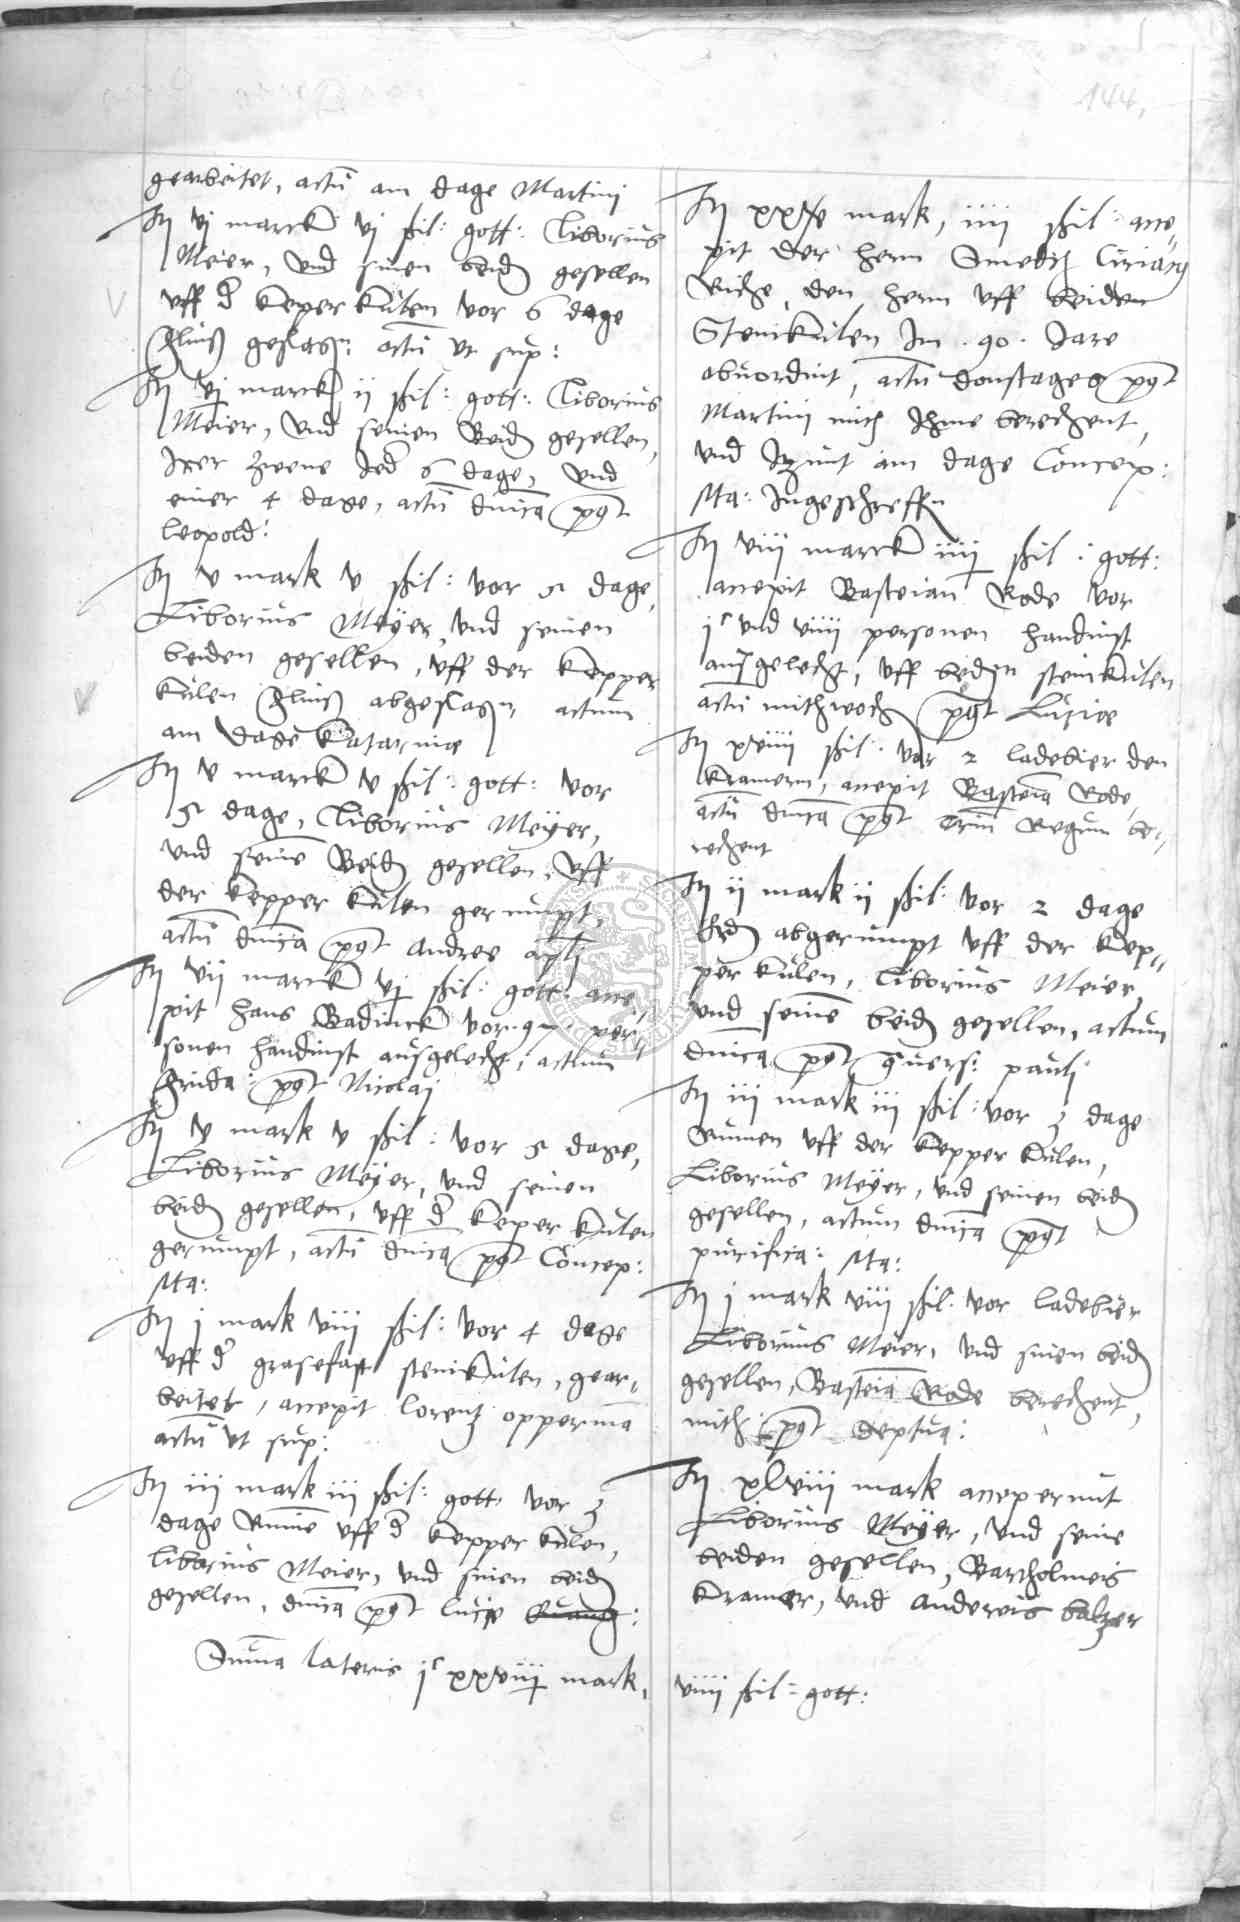 144.
gearbeitet, actū am dage Martini
It vj marck vj ßil: gott: Liborius
Meier, vnd sinen beidē gesellen
vff d' keper kulen vor 6 dage
actū vt sup:
It vj marck ij ßil: gott: Liborius
Meier, vnd seinen Beidē gesellen,
zweene Jed' 6 dage, vnd
einer 4 dage, actū dnica pst
leopold:
It v mark v ßil: vor 5 dage,
Liborius Meyer, vnd seinen
beiden gesellen, vff der kepper
kulen abgeslagn, actum
am dage Katarinae
It v marck v ßil: gott: vor
5 dage, Liborius Meyer,
vnd seine Beidē gesellen, vff
der kepper kulen gerumpt,
actū dnica pst Andree apli
It vij marck vj ßil: gott: acce
pit hans Badinck vor per
sonen handinst ausgelecht, actum
pst Nicolaj
It v mark v ßil: vor 5 dage,
Liborius Meyer, vnd seinen
beidē gesellen, vff d' keper kulen
gerumpt, actū dnica pst Concep:
Ma:
It j mark viij ßil: vor 4 dage
vff d' grasefast steinkulen, gear-
beitet, accepit Lorentz opperma
actū vt sup:
It iij mark iij ßil: gott: vor 3
dage Rumē vff d' kepper kulen,
Liborius Meier, vnd sinen beidē
gesellen, dnica pst Lucie
Suma lateris jc xxviij mark, viiij ßil: gott:
It mark, iiij ßil: acce
pit der herrn Smedt Ciriacus
den herrn vff beiden
Steinkulen In .90. Jare
actū donstages pst
Martini mit Ihme berechent,
vnd Itzunt am dage Concep:
Ma: Ingeschreffn
It viij marck iiij ßil: gott:
accepit Basteian Rode vor
jc vnd viiij personen handinst
ausgelecht, vff beiden steinkulen
actū mithwoch pst Lucie
It xviiij ßil: vor 2 ladebier den
kramern, accepit Basteia Rode,
actū dnica pst Trium Regum be-
rechent
It ij mark ij ßil: vor 2 dage
Erdē abgerumpt vff der kep-
per kulen, Liborius Meier,
vnd seine beidē gesellen, actum
dnica pst quers: pauli
It iij mark iij ßil: vor 3 dage
Rumen vff der kepper kulen,
Liborius Meyer, vnd seinen beidē
gesellen, actum dnica pst
purifica: Ma:
It j mark viij ßil: vor ladebier
Liborius Meier, vnd sinen beidē
gesellen, Basteia Rode berechent,
mith: pst
It xlviij mark acceperunt
Liborius Meyer, vnd seine
beiden gesellen, Bartholmeis
kramer, vnd Andereis balzer